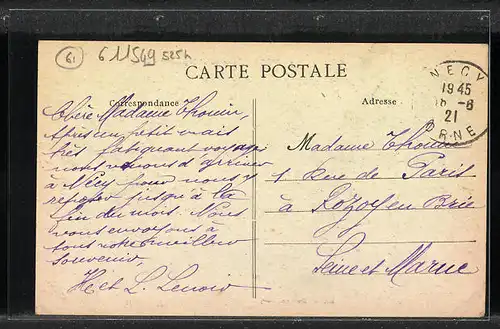 61
611549 525h
CARTE POSTALE
Correspondance
Adresse
NECY
1945
6-8
21
ORNE
Chère Madame Thouin,
Après un petit mais
très fatiguant voyage
nous venons d'arriver
à Nécy pour nous y
reposer jusqu'à la
fin du mois. Nous
vous envoyons à
tous notre meilleur
souvenir.
H et L. Lenoir
Madame Thouin
1 Rue de Paris
à Rozoy en Brie
Seine et Marne